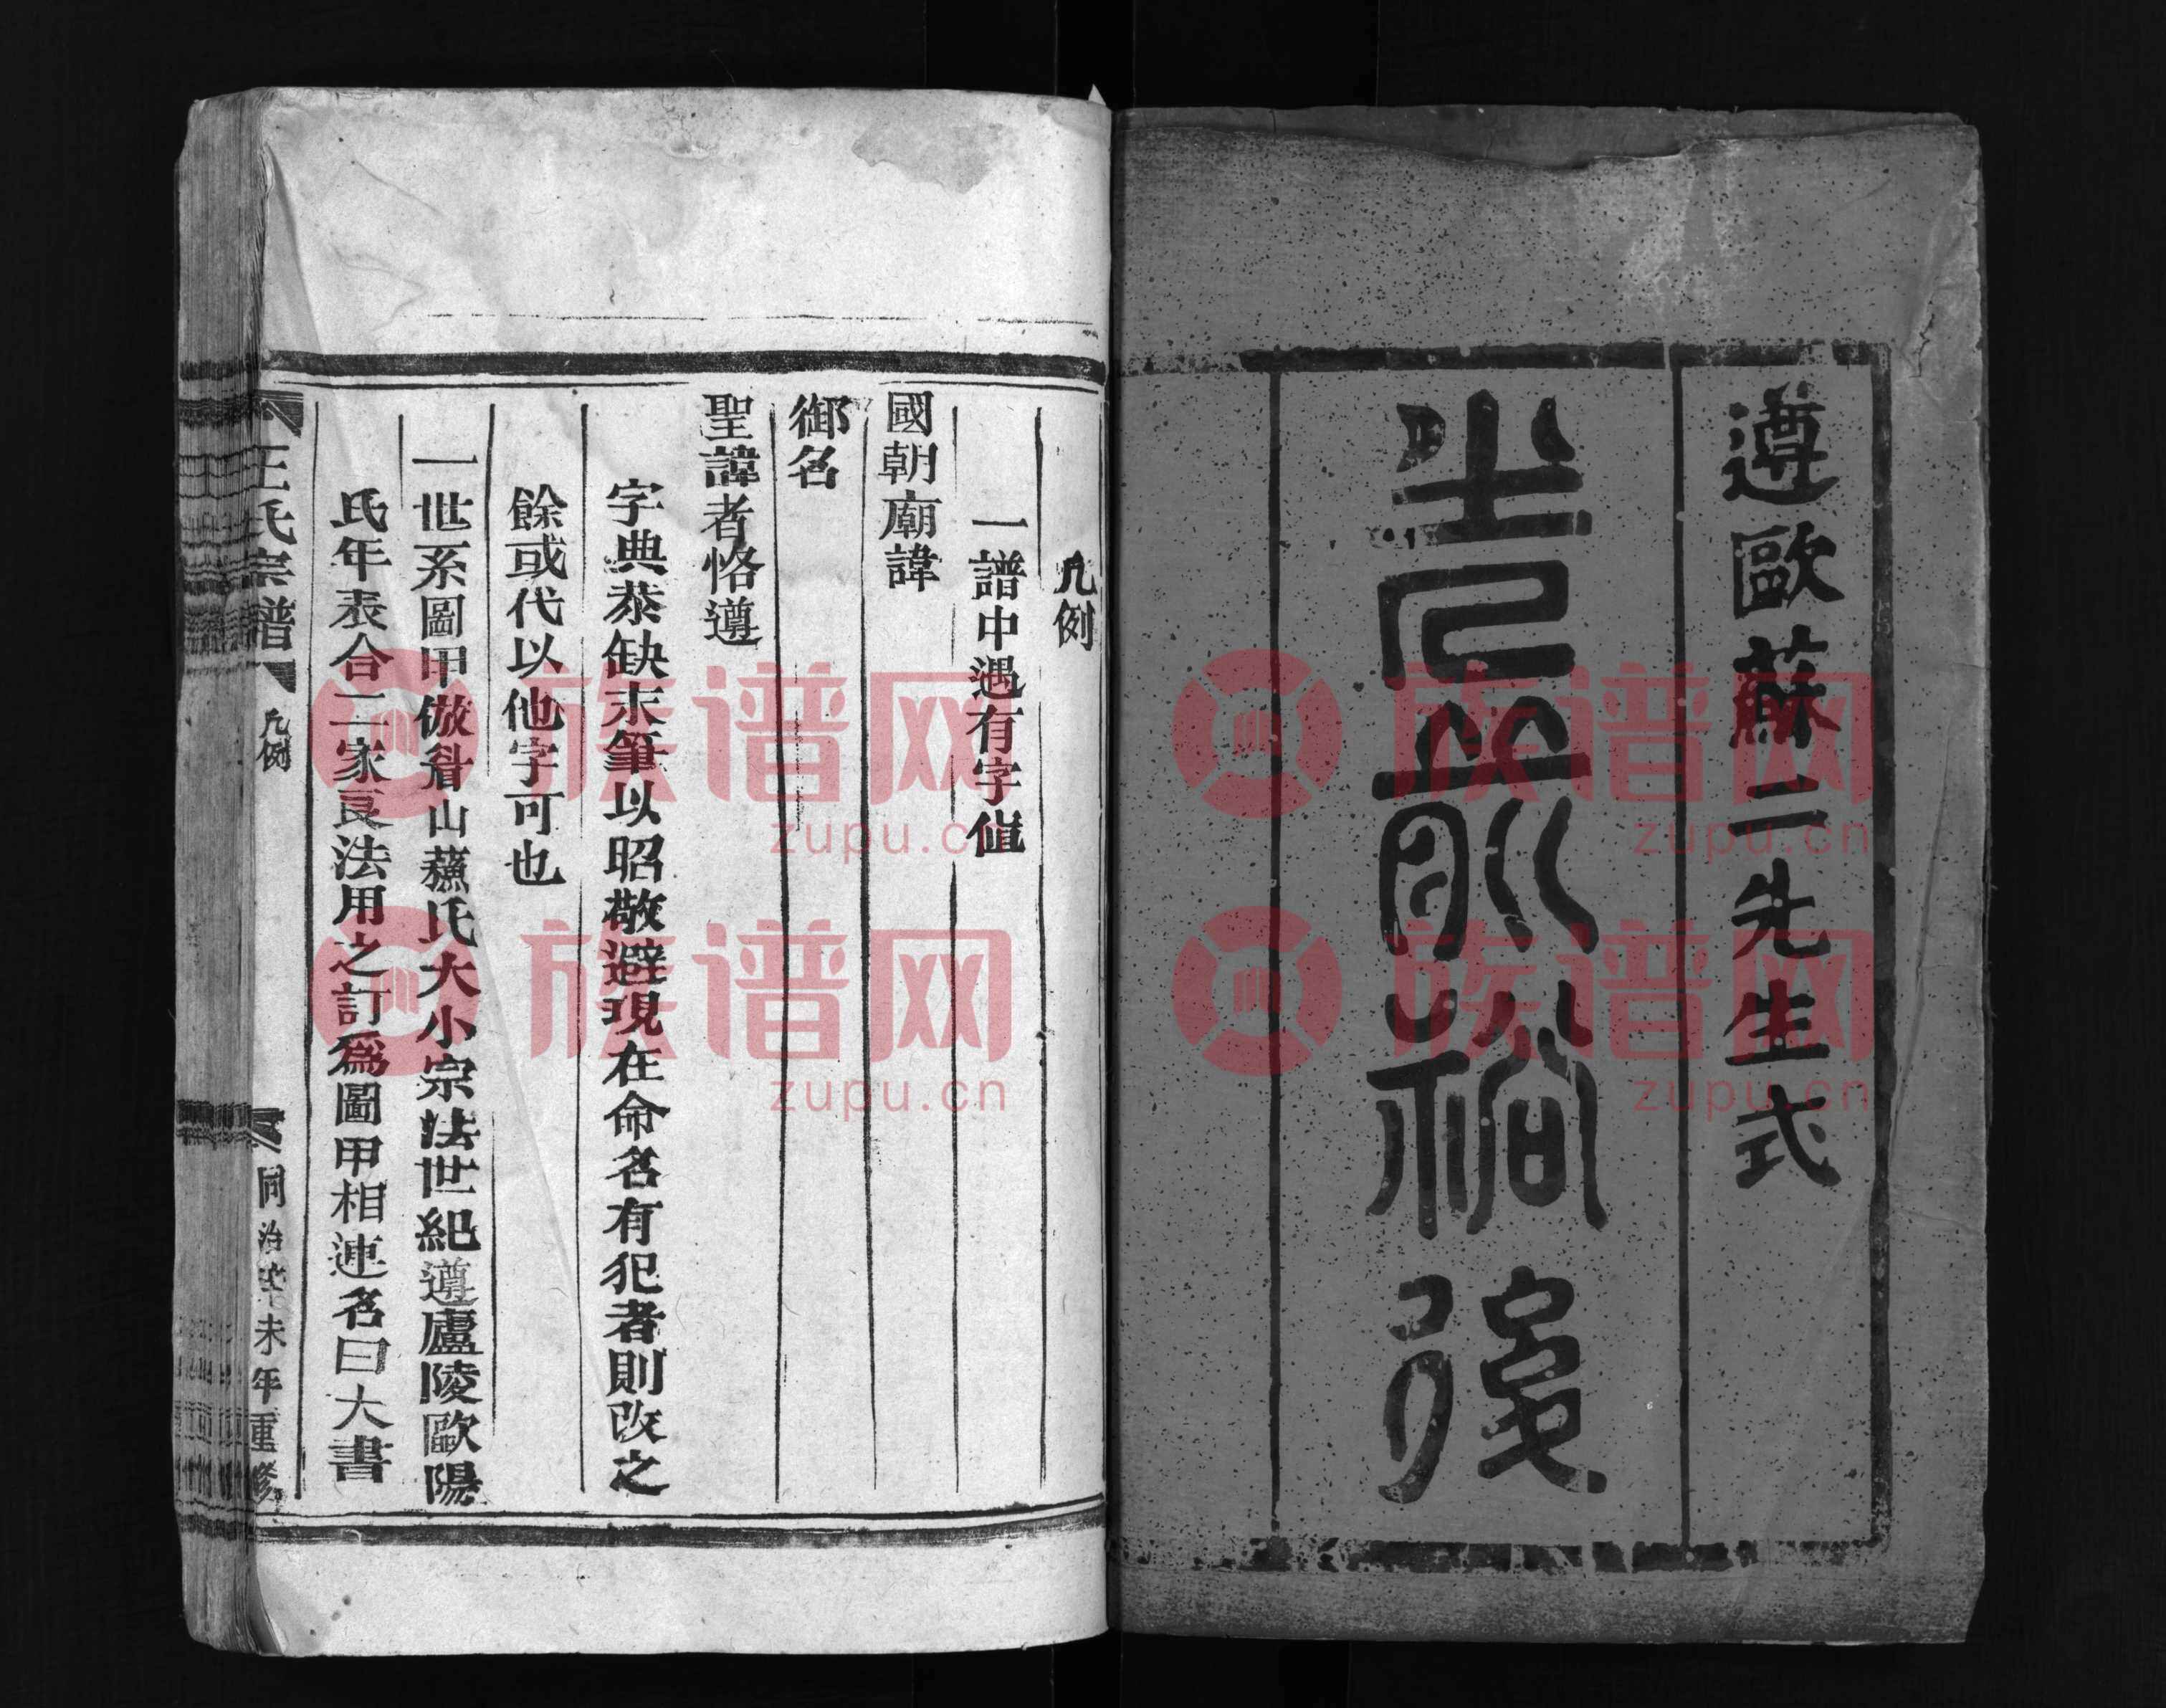 遵歐蘇二先生式
光前裕後
凡例
一譜中遇有字值
國朝廟諱
御名
聖諱者恪遵
字典恭缺末筆以昭敬避現在命名有犯者則改之
餘或代以他字可也
一世系圖甲倣眉山蘇氏大小宗法世紀遵廬陵歐陽
氏年表合二家良法用之訂爲圖甲相連名曰大書
王氏宗譜 凡例 同治辛未年重修
族谱网
zupu.cn
族谱网
zupu.cn
族谱网
zupu.cn
族谱网
zupu.cn